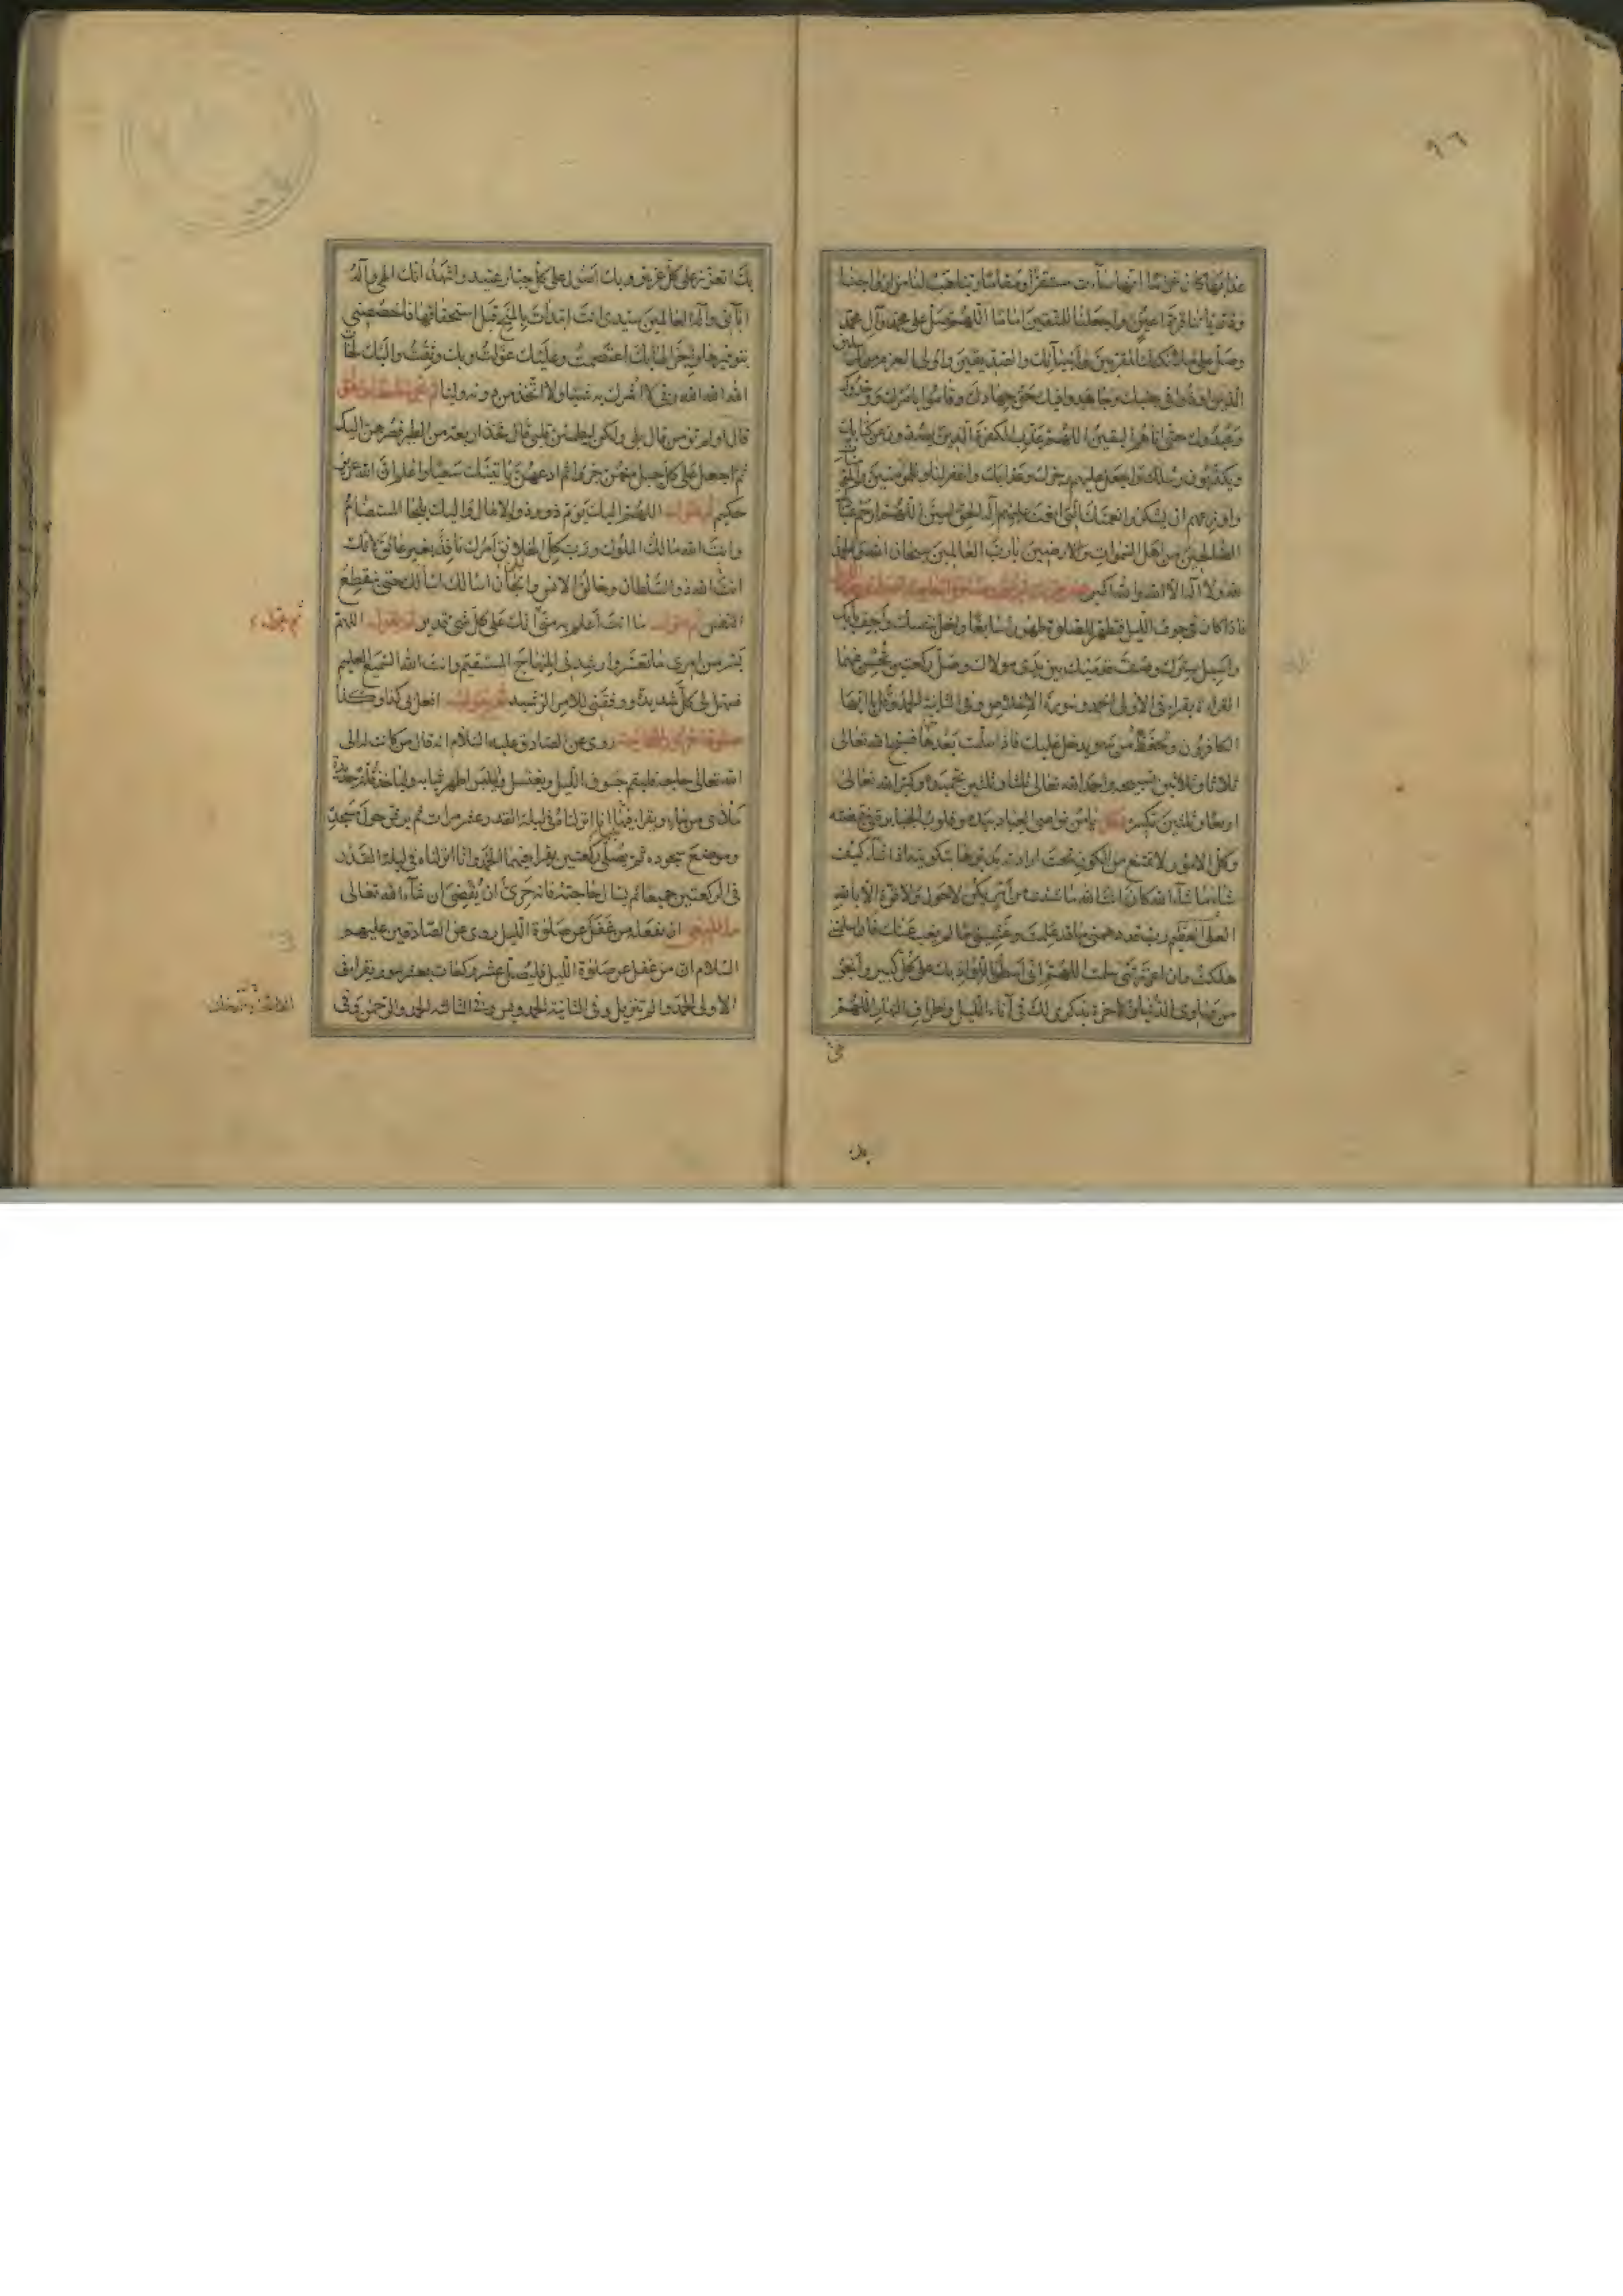 ٩٦
عذابها كان غراما انها ساءت مستقرا ومقاما ربنا هب لنا من ازواجنا
وذرياتنا قرة اعين واجعلنا للمتقين اماما اللهم صل على محمد وآل محمد
وصل على ملائكتك المقربين وانبيائك والصديقين واولى العزم من المرسلين
الذين اوذوا فى جنبك وجاهدوا فيك حق جهادك وقاموا بامرك ووحدوك
وعبدوك حتى اتاهم اليقين اللهم عذب الكفرة الذين يصدون عن كتابك
ويكذبون رسلك واجعل عليهم رجزك وعذابك واغفر لنا وللمؤمنين
واوزعهم ان يشكروا نعمتك التى انعمت عليهم اله الحق آمين اللهم ارحم عبادك
الصالحين من اهل السموات والارضين يا رب العالمين سبحان الله والحمد
لله ولا اله الا الله والله اكبر
فاذا كان فى جوف الليل فتطهر للصلوة طهورا سابغا واخل بنفسك واجف بابك
واسبل سترك وصف قدميك بين يدى مولاك وصل ركعتين تحسن فيهما
القراءة تقراء فى الاولى الحمد وسورة الاخلاص وفى الثانية الحمد وقل يا ايها
الكافرون وتحفظ من سهو يدخل عليك فاذا سلمت بعدها فسبح الله تعالى
ثلاثا وثلاثين تسبيحة واحمد الله تعالى ثلثا وثلثين تحميدة وكبر الله تعالى
اربعا وثلثين تكبيرة وقل يا من نواصى العباد بيده وقلوب الجبابرة فى قبضته
وكل الامور لا تمتنع من الكون تحت ارادته يدبرها بتكوينه اذا شاء كيف
شاء ما شاء الله كان انت الله ما شئت من امر يكن لا حول ولا قوة الا بالله
العلى العظيم رب قد دهمنى ما قد علمت وغشينى ما لم يغب عنك فان اسلمتنى
هلكت وان اعززتنى سلمت اللهم انى اسطو باللواذ بك على كل كبير وانجو
من مهاوى الدنيا والآخرة بذكرى لك فى آناء الليل واطراف النهار اللهم
بك اتعزز على كل عزيز وبك اصول على كل جبار عنيد واشهد انك الهى واله
آبائى واله العالمين سيدى انت ابتدأت بالمنح قبل استحقاقها فاخصصنى
بتوفيرها واجزالها بك اعتصمت وعليك عولت وبك وثقت واليك لجأت
الله الله الله ربى لا اشرك به شيئا ولا اتخذ من دونه وليا
قال اولم تؤمن قال بلى ولكن ليطمئن قلبى قال فخذ اربعة من الطير فصرهن اليك
ثم اجعل على كل جبل منهن جزءا ثم ادعهن يأتينك سعيا واعلم ان الله عزيز
حكيم ثم تقول اللهم اليك يؤم ذوو الآمال واليك يلجأ المستضام
وانت الله مالك الملوك ورب كل الخلائق امرك نافذ بغير عائق لانك
انت الله ذو السلطان وخالق الانس والجان اسألك اسألك حتى ينقطع
النفس ثم تقول ما انت اعلم به منى انك على كل شئ قدير ثم تقول اللهم
يسر من امرى ما تعسر وارشدنى المنهاج المستقيم وانت الله السميع العليم
فسهل لى كل شديدة ووفقنى للامر الرشيد ثم تقول افعل بى كذا وكذا
روى عن الصادق عليه السلام انه قال من كانت له الى
الله تعالى حاجة فليقم جوف الليل ويغتسل وليلبس اطهر ثيابه ولياخذ قلة جديدة
ملأى من ماء ويقراء فيها انا انزلناه فى ليلة القدر عشر مرات ثم يرش حول مسجده
وموضع سجوده ثم يصلى ركعتين يقرا فيهما الحمد وانا انزلناه فى ليلة القدر
فى الركعتين جميعا ثم يسال حاجته فانه حرى ان يقضى ان شاء الله تعالى
ما ينبغى ان يفعله من غفل عن صلوة الليل روى عن الصادقين عليهم
السلام ان من غفل عن صلوة الليل فليصل عشر ركعات بعشر سور يقراء فى
الاولى الحمد والم تنزيل وفى الثانية الحمد ويس وفى الثالثة الحمد والرحمن وفى